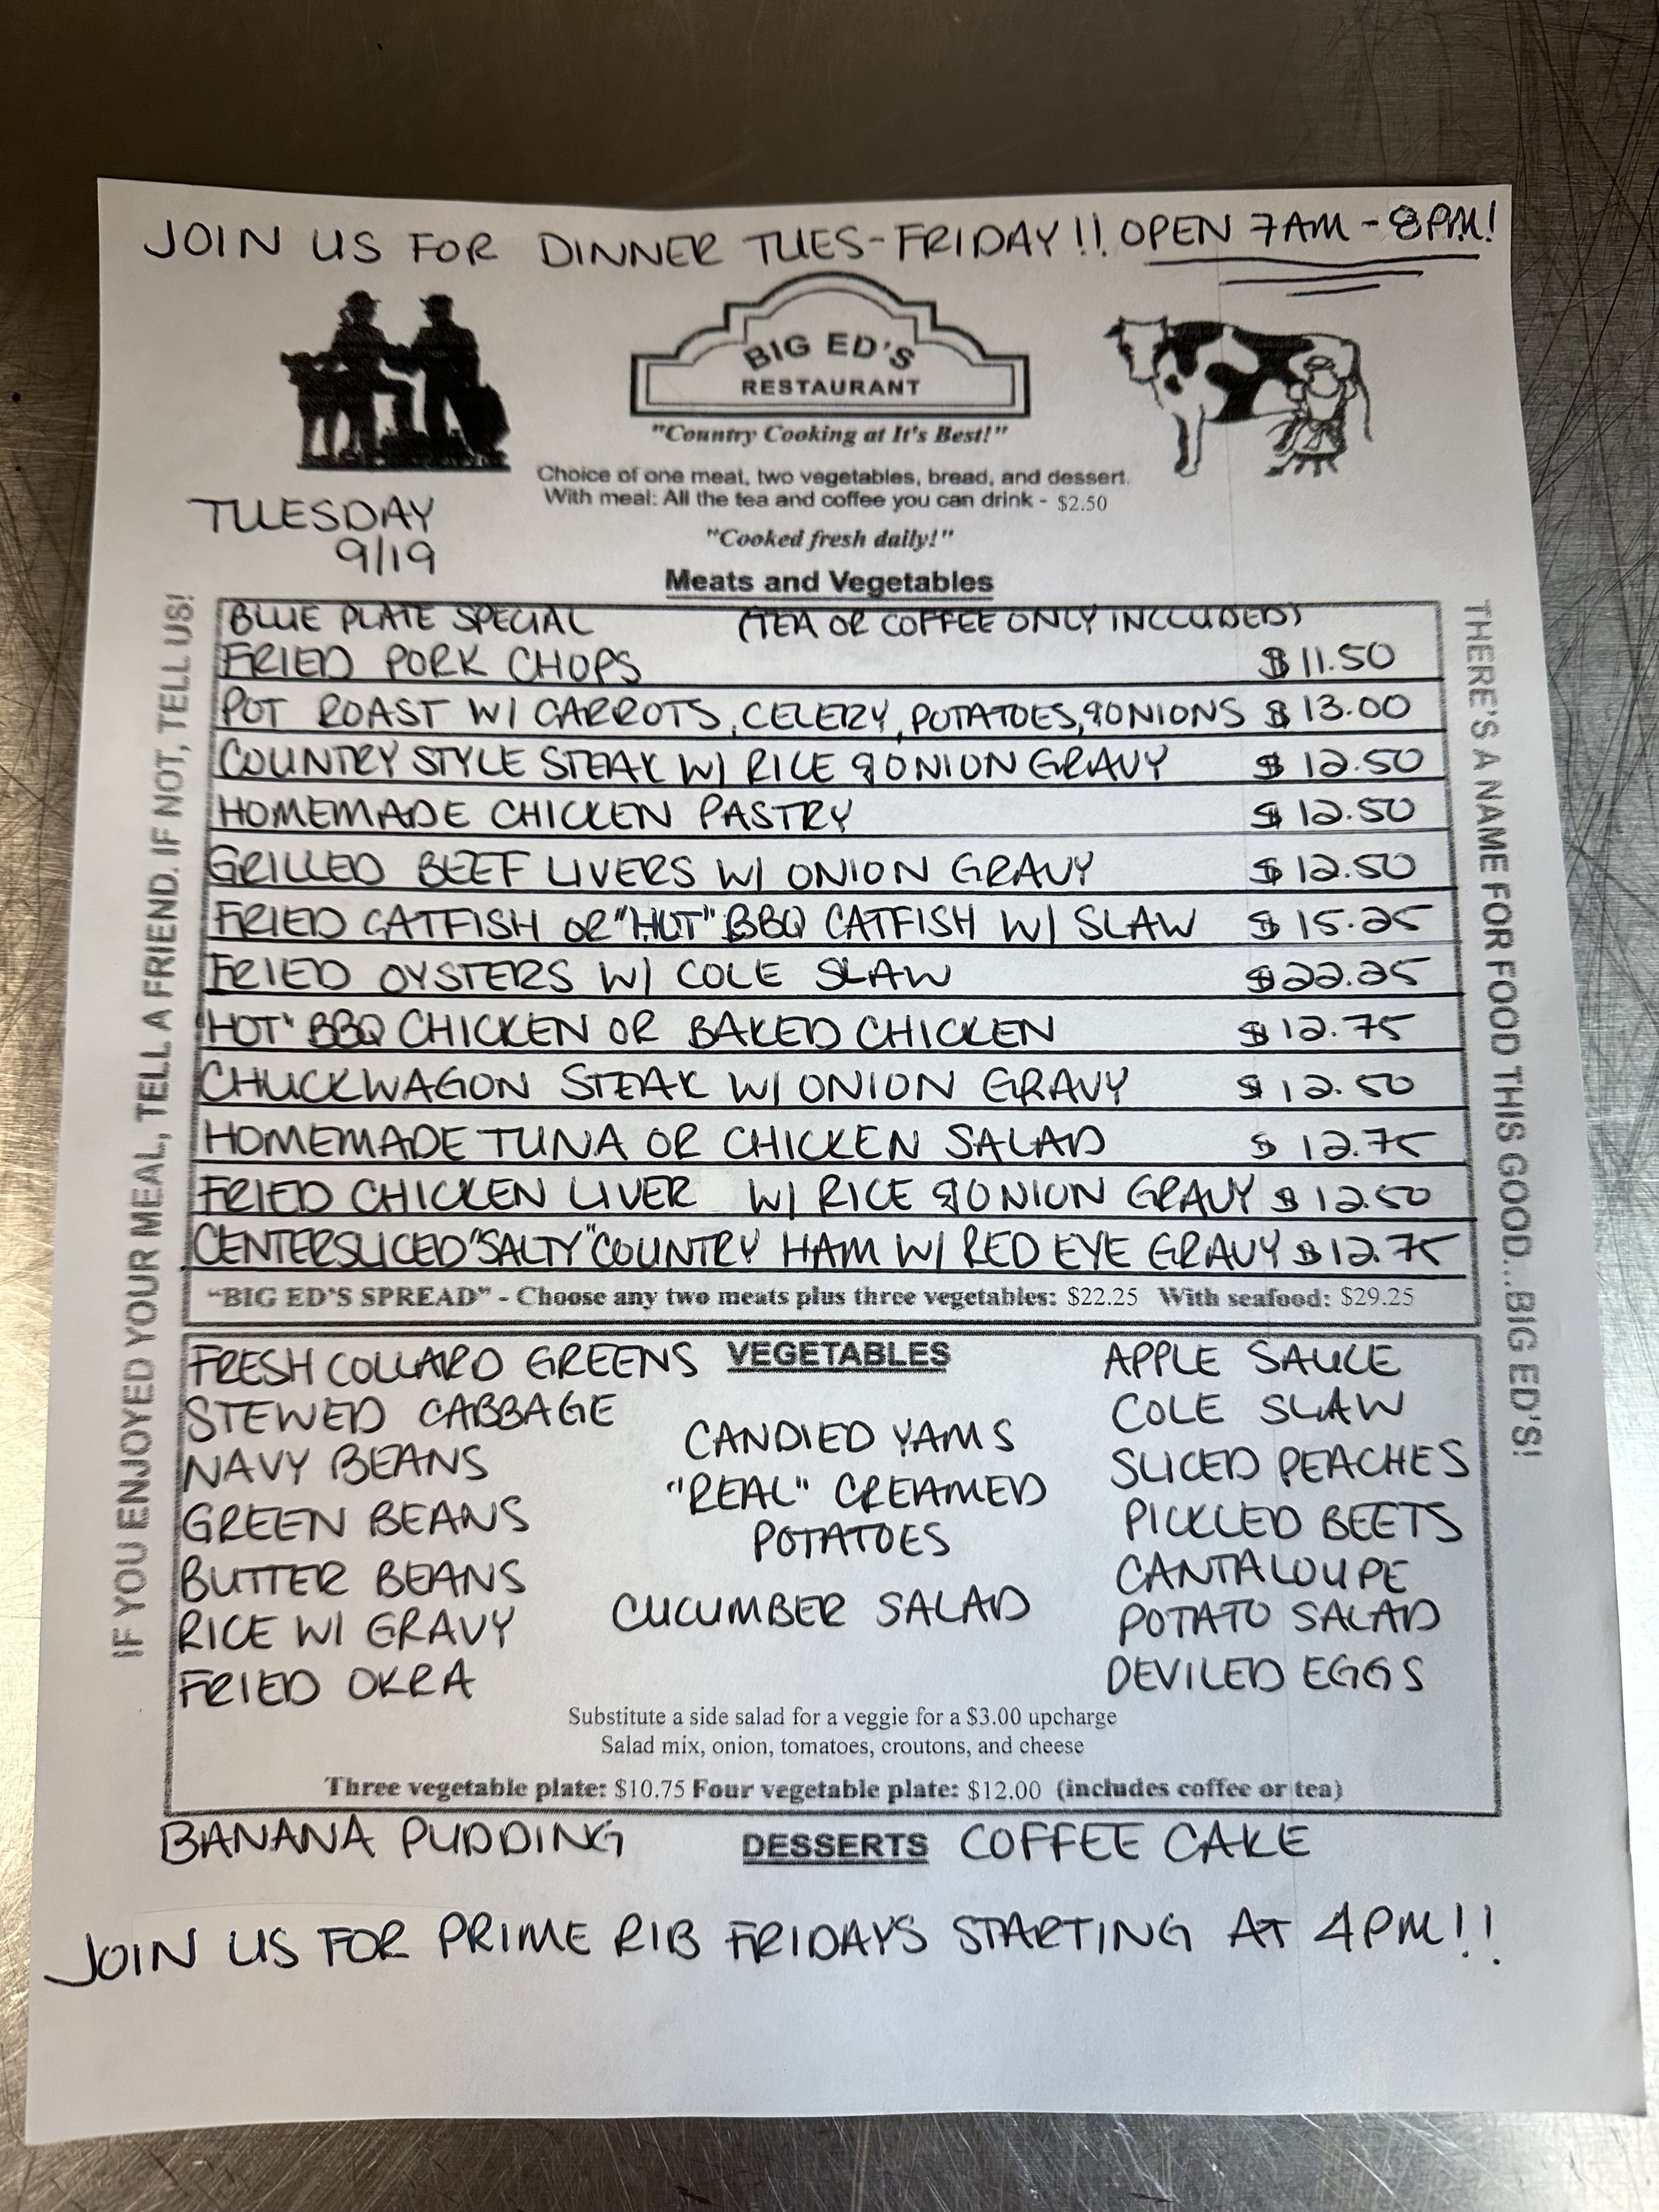 JOIN US FOR DINNER TUES-FRIDAY!! OPEN 7AM - 8PM!
BIG ED'S
RESTAURANT
"Country Cooking at It's Best!"
Choice of one meat, two vegetables, bread, and dessert.
With meal: All the tea and coffee you can drink - $2.50
TUESDAY
9/19
"Cooked fresh daily!"
Meats and Vegetables
IF YOU ENJOYED YOUR MEAL, TELL A FRIEND. IF NOT, TELL US!
BLUE PLATE SPECIAL (TEA OR COFFEE ONLY INCLUDED)
FRIED PORK CHOPS $11.50
POT ROAST W/ CARROTS, CELERY, POTATOES, & ONIONS $13.00
COUNTRY STYLE STEAK W/ RICE & ONION GRAVY $12.50
HOMEMADE CHICKEN PASTRY $12.50
GRILLED BEEF LIVERS W/ ONION GRAVY $12.50
FRIED CATFISH OR "HOT" BBQ CATFISH W/ SLAW $15.25
FRIED OYSTERS W/ COLE SLAW $22.25
"HOT" BBQ CHICKEN OR BAKED CHICKEN $12.75
CHUCKWAGON STEAK W/ ONION GRAVY $12.50
HOMEMADE TUNA OR CHICKEN SALAD $12.75
FRIED CHICKEN LIVER W/ RICE & ONION GRAVY $12.50
CENTERSLICED "SALTY" COUNTRY HAM W/ RED EYE GRAVY $12.75
"BIG ED'S SPREAD" - Choose any two meats plus three vegetables: $22.25 With seafood: $29.25
THERE'S A NAME FOR FOOD THIS GOOD...BIG ED'S!
VEGETABLES
FRESH COLLARD GREENS
STEWED CABBAGE
NAVY BEANS
GREEN BEANS
BUTTER BEANS
RICE W/ GRAVY
FRIED OKRA
CANDIED YAMS
"REAL" CREAMED
POTATOES
CUCUMBER SALAD
APPLE SAUCE
COLE SLAW
SLICED PEACHES
PICKLED BEETS
CANTALOUPE
POTATO SALAD
DEVILED EGGS
Substitute a side salad for a veggie for a $3.00 upcharge
Salad mix, onion, tomatoes, croutons, and cheese
Three vegetable plate: $10.75 Four vegetable plate: $12.00 (includes coffee or tea)
BANANA PUDDING DESSERTS COFFEE CAKE
JOIN US FOR PRIME RIB FRIDAYS STARTING AT 4PM!!